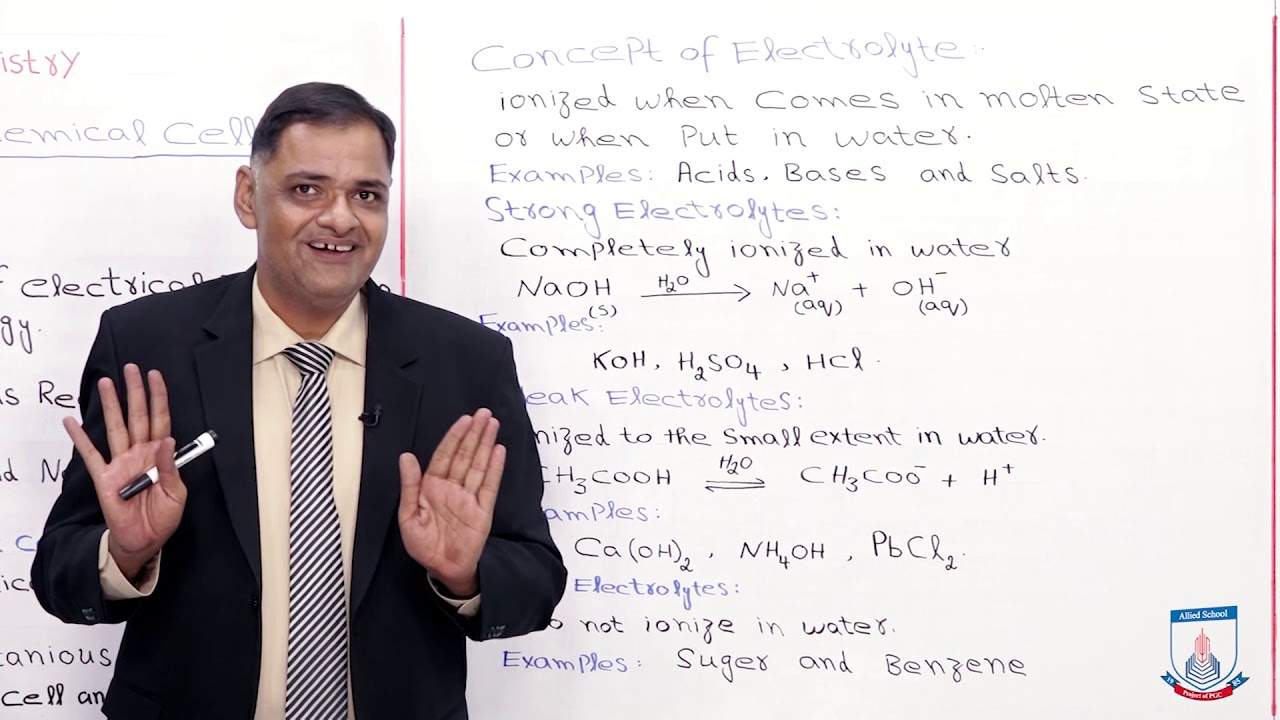 istry
emical Cell
f electrical
gy.
s Re
d N
c
ic
tanious
cell an
Concept of Electrolyte:
ionized when comes in molten state
or when Put in water.
Examples: Acids, Bases and Salts.
Strong Electrolytes:
Completely ionized in water
NaOH(s) H2O ⟶ Na+(aq) + OH-(aq)
Examples:
KOH, H2SO4, HCl.
eak Electrolytes:
nized to the small extent in water.
CH3COOH H2O ⇌ CH3COO- + H+
amples:
Ca(OH)2, NH4OH, PbCl2.
Electrolytes:
o not ionize in water.
Examples: Suger and Benzene
Allied School
19 85
Project of PGC